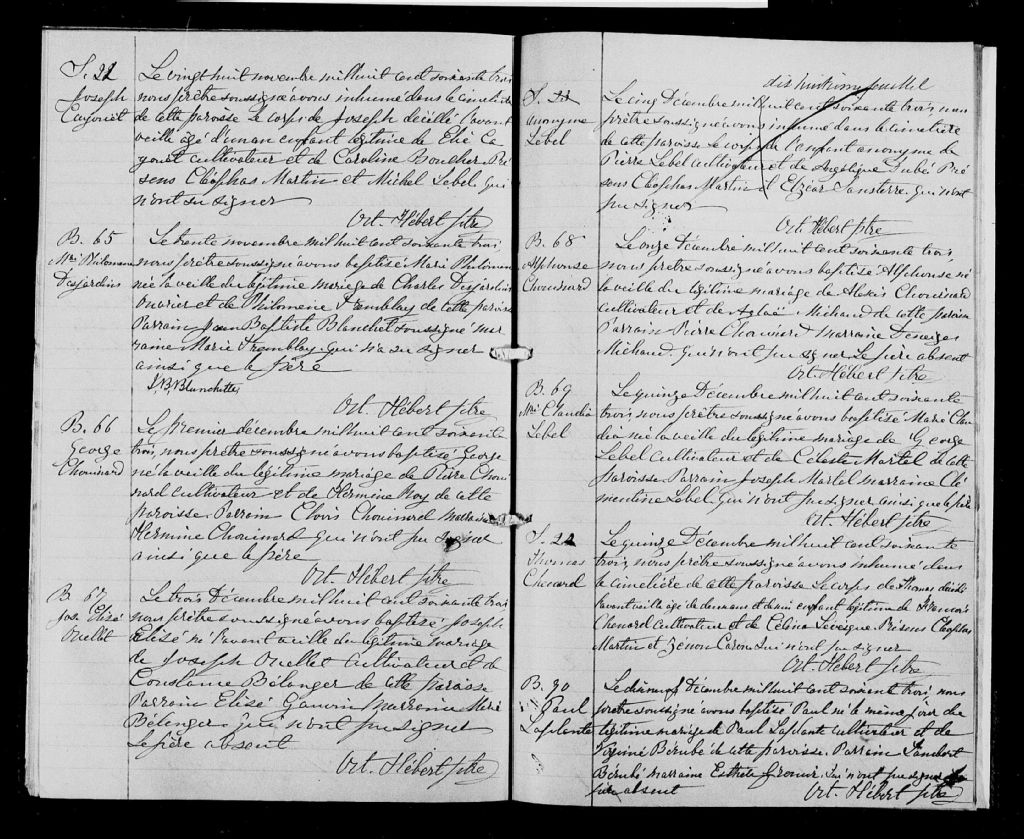 S. 22
Joseph
Cayouët
Le vingt huit novembre mil huit cent soixante trois
nous prêtre soussigné avons inhumé dans le cimetière
de cette paroisse le corps de Joseph décédé l'avant
veille âgé d'un an enfant légitime de Elie Ca
youet cultivateur et de Caroline Boucher Pré
sens Cléophas Martin et Michel Lebel qui
n'ont su signer
Oct. Hébert ptre
B. 65
Mie Philomene
Desjardins
Le trente novembre mil huit cent soixante trois,
nous prêtre soussigné avons baptisé Marie Philomene
née la veille du légitime mariage de Charles Desjardins
et de Philomene Tremblay de cette paroisse
Parrain Jean Baptiste Blanchet soussigné mar
raine Marie Tremblay. qui n'a su signer
ainsi que le père
J. B. Blanchette
Oct. Hébert ptre
B. 66
George
Chouinard
Le premier décembre mil huit cent soixante
trois, nous prêtre soussigné avons baptisé George
né la veille du légitime mariage de Pierre Choui
nard cultivateur et de Hermine Roy de cette
paroisse. Parrain Clovis Chouinard marraine
Hermine Chouinard qui n'ont pu signer
ainsi que le père
Oct. Hébert ptre
B. 67
Jos. Elisé
Ouellet
Le trois Décembre mil huit cent soixante trois
nous prêtre soussigné avons baptisé Joseph
Elisé né l'avant veille du légitime mariage
de Joseph Ouellet cultivateur et de
Constance Bélanger de cette paroisse
Parrain Elisé Gauvin marraine Marie
Bélanger qui n'ont pu signer
Le père absent
Oct. Hébert ptre
S.
anonyme
Lebel
Le cinq Décembre mil huit cent soixante trois, nous
prêtre soussigné avons inhumé dans le cimetière
de cette paroisse le corps de l'enfant anonyme de
Pierre Lebel cultivateur et de Angélique Dubé Pré
sens Cléophas Martin et Elzéar Sansterre. qui n'ont
pu signer
Oct. Hébert ptre
B. 68
Alphonse
Chouinard
Le onze Décembre mil huit cent soixante trois,
nous prêtre soussigné avons baptisé Alphonse né
la veille du légitime mariage de Alexis Chouinard
cultivateur et de Aglaé Michaud de cette paroisse
Parrain Pierre Chouinard marraine Deneiges
Michaud. qui n'ont pu signer le père absent
Oct. Hébert ptre
B. 69
Mie Claudia
Lebel
Le quinze Décembre mil huit cent soixante
trois, nous prêtre soussigné avons baptisé Marie Clau
dia née la veille du légitime mariage de George
Lebel cultivateur et de Céleste Martel de cette
paroisse. Parrain Joseph Martel marraine Clé
mentine Lebel. qui n'ont pu signer ainsi que le père
Oct. Hébert ptre
S. 22
Thomas
Chenard
Le quinze Décembre mil huit cent soixante
trois, nous prêtre soussigné avons inhumé dans
le cimetière de cette paroisse le corps de Thomas décédé
l'avant veille âgé de deux ans et demi enfant légitime de François
Chenard cultivateur et de Célina Lévesque. Présens Cléophas
Martin et Zénon Caron qui n'ont pu signer
Oct. Hébert ptre
B. 70
Paul
Laplante
Le Décembre mil huit cent soixante trois, nous
prêtre soussigné avons baptisé Paul né le même jour du
légitime mariage de Paul Laplante cultivateur et de
Virginie Bérubé de cette paroisse. Parrain Lambert
Bérubé marraine Esther qui n'ont pu signer le
père absent
Oct. Hébert ptre